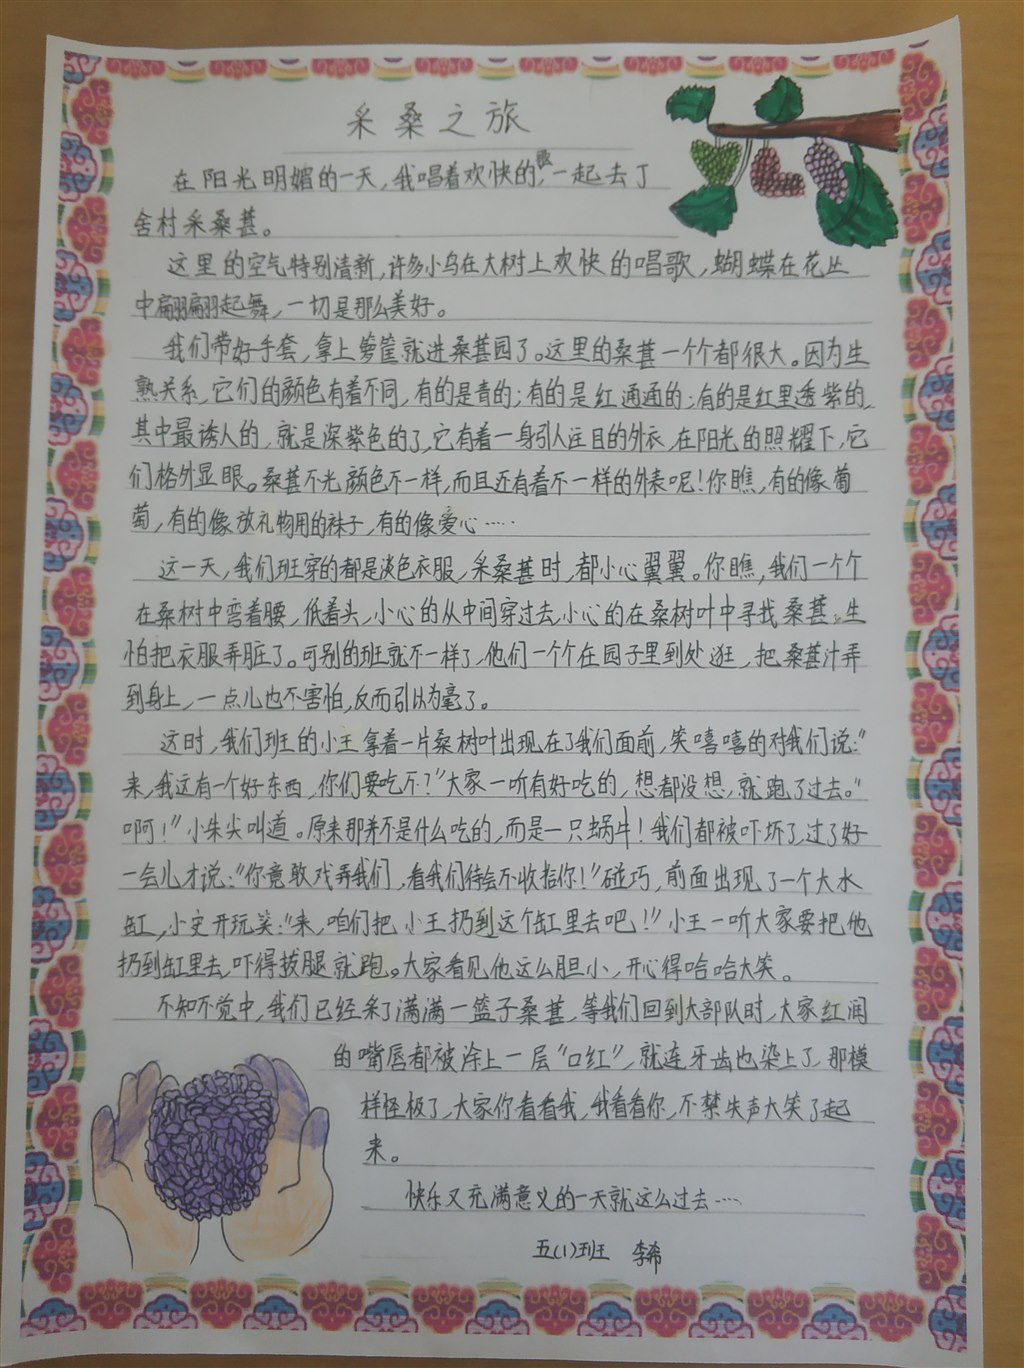 采桑之旅
在阳光明媚的一天,我唱着欢快的歌,一起去丁
舍村采桑葚。
这里的空气特别清新,许多小鸟在大树上欢快的唱歌,蝴蝶在花丛
中翩翩起舞,一切是那么美好。
我们带好手套,拿上箩筐就进桑葚园了。这里的桑葚一个个都很大。因为生
熟关系,它们的颜色有着不同,有的是青的;有的是红通通的;有的是红里透紫的,
其中最诱人的,就是深紫色的了,它有着一身引人注目的外衣,在阳光的照耀下,它
们格外显眼。桑葚不光颜色不一样,而且还有着不一样的外表呢!你瞧,有的像葡
萄,有的像放礼物用的袜子,有的像爱心……
这一天,我们班穿的都是淡色衣服,采桑葚时,都小心翼翼。你瞧,我们一个个
在桑树中弯着腰,低着头,小心的从中间穿过去,小心的在桑树叶中寻找桑葚,生
怕把衣服弄脏了。可别的班就不一样了,他们一个个在园子里到处逛,把桑葚汁弄
到身上,一点儿也不害怕,反而引以为毫了。
这时,我们班的小王拿着一片桑树叶出现在了我们面前,笑嘻嘻的对我们说:“
来,我这有一个好东西,你们要吃不?”大家一听有好吃的,想都没想,就跑了过去。“
啊!”小朱尖叫道。原来那并不是什么吃的,而是一只蜗牛!我们都被吓坏了,过了好
一会儿才说:“你竟敢戏弄我们,看我们待会不收拾你!”碰巧,前面出现了一个大水
缸,小史开玩笑:“来,咱们把小王扔到这个缸里去吧!!”小王一听大家要把他
扔到缸里去,吓得拔腿就跑。大家看见他这么胆小,开心得哈哈大笑。
不知不觉中,我们已经采了满满一篮子桑葚,等我们回到大部队时,大家红润
的嘴唇都被涂上一层“口红”,就连牙齿也染上了,那模
样怪极了,大家你看看我,我看看你,不禁失声大笑了起
来。
快乐又充满意义的一天就这么过去……
五(1)班 李希